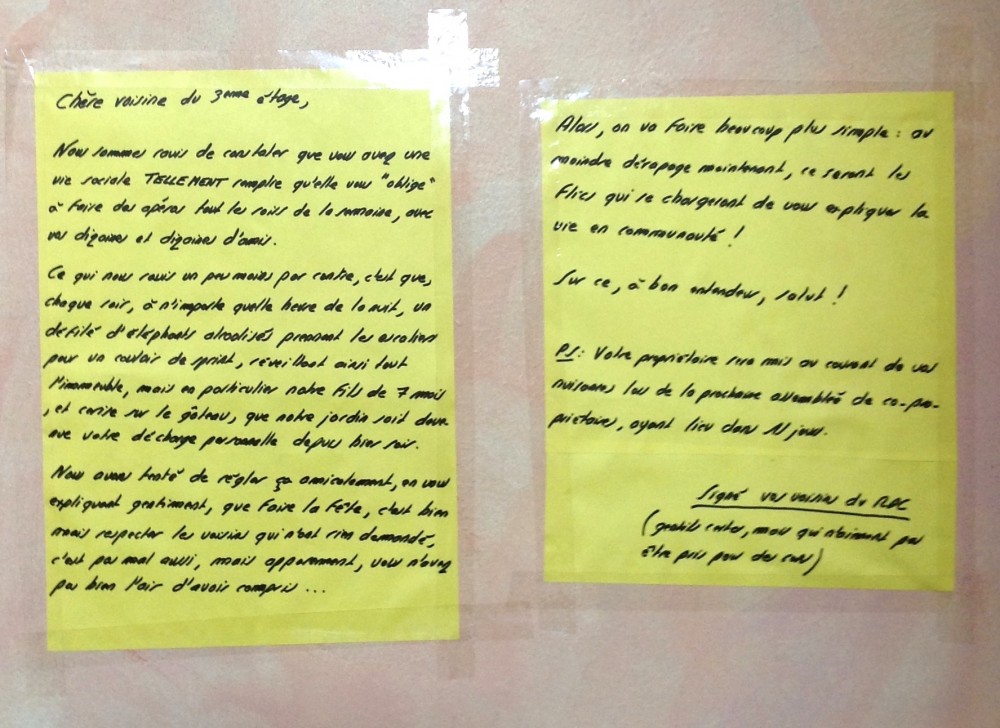 Chère voisine du 3eme étage,
Nous sommes ravis de constater que vous avez une
vie sociale TELLEMENT remplie qu'elle vous "oblige"
à faire des apéros tout les soirs de la semaine, avec
vos dizaines et dizaines d'amis.
Ce qui nous ravis un peu moins par contre, c'est que,
chaque soir, à n'importe quelle heure de la nuit, un
défilé d'éléphants alcoolisés prennent les escaliers
pour un couloir de sprint, réveillant ainsi tout
l'immeuble, mais en particulier notre fils de 7 mois
, et cerise sur le gâteau, que notre jardin soit deve-
nue votre décharge personnelle depuis hier soir.
Nous avons tenté de régler ça amicalement, en vous
expliquant gentiment, que faire la fête, c'est bien
mais respecter les voisins qui n'ont rien demandé,
c'est pas mal aussi, mais apparemment, vous n'avez
pas bien l'air d'avoir compris ...
Alors, on va faire beaucoup plus simple : au
moindre dérapage maintenant, ce seront les
flics qui se chargeront de vous expliquer la
vie en communauté !
Sur ce, à bon entendeur, salut !
PS : Votre propriétaire sera mis au courant de vos
nuisances lors de la prochaine assemblée de co-pro-
priétaires, ayant lieu dans 11 jours.
Signé vos voisins du RDC
(gentils certes, mais qui n'aiment pas
être pris pour des cons)